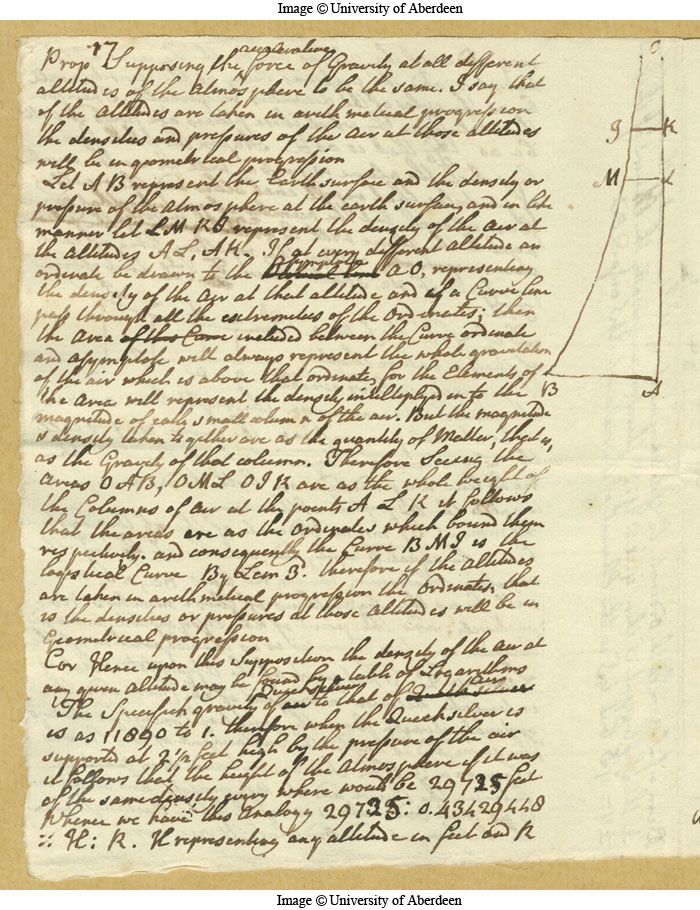 Image © University of Aberdeen
Prop 17 Supposing the accelerating force of Gravity at all different
altitudes of the Atmosphere to be the same. I say that
if the Altitudes are taken in arithmetical progression
the densities and pressures of the air at those altitudes
will be in geometrical progression
Let A B represent the Earth surface and the density or
pressure of the atmosphere at the earth surface, and in like
manner let L M K I represent the density of the air at
the altitudes A L, A K. If at every different altitude an
ordinate be drawn to the Asymptote A O, representing
the density of the Ayr at that altitude and if a Curve line
pass through all the extremities of the Ordinates; then
the Area of this Curve included between the Curve ordinate
and asymptote will always represent the whole gravitation
of the air which is above that ordinate, for the Elements of
the area will represent the density multiplyed in to the
magnitude of each small column of the air. But the magnitude
& density taken together are as the quantity of Matter, that is,
as the Gravity of that column. Therefore Seeing the
areas O A B, O M L O I K are as the whole weight of
the Columns of air at the points A L K it follows
that the areas are as the ordinates which bound them
respectively. and consequently the Curve B M I is the
Logistical Curve By Lem 3. therefore if the altitudes
are taken in arithmetical progression the Ordinates, that
is the densities or pressures at those altitudes will be in
Geometrical progression
Cor Hence upon this Supposition the density of the air at
any given altitude may be found by a table of Logarithms
The Specifick gravity of Quecksilver air to that of Quecksilver air
is as 11890 to 1. therefore when the Quecksilver is
supported at 2 1/2 feet high by the pressure of the air
it follows that the height of the Atmosphere if it was
of the same density every where would be 29725 feet
Whence we have this Analogy 29725: 0.43429448
:: H: R. H representing any altitude in feet and R
O
I K
M L
B A
Image © University of Aberdeen